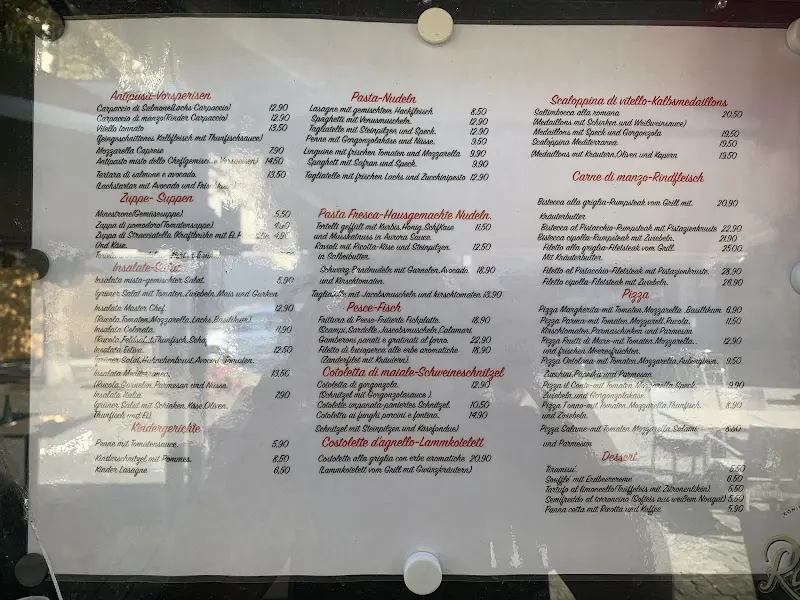 Antipasti-Vorspeisen
Carpaccio di Salmone(Lachs Carpaccio) 12.90
Carpaccio di manzo(Rinder Carpaccio) 12.90
Vitello tonnato 13.50
(feingeschnittenes Kalbfleisch mit Thunfischsauce)
Mozzarella Caprese 7.90
Antipasto misto dello Chef(gemischte Vorspeisen) 14.50
Tartara di salmone e avocado 13.50
(Lachstartar mit Avocado und
Zuppe- Suppen
Minestrone(Gemüsesuppe) 5.50
Zuppa di pomodoro(Tomatensuppe) 4.50
Zuppa di Stracciatella (Kraftbrühe mit Ei, 4.90
Und Käse.
Insalate-Salat
Insalata mista-gemischter Salat. 5.90
Grüner Salat mit Tomaten,Zwiebeln,Mais und Gurken
Insalata Master Chef. 12.90
(Rucola,Tomaten,Mozzarella,Lachs,Basilikum)
Insalata Colorata. 11.90
(Rucola,Feldsalat,Thunfisch,
Insalata Estiva. 12.50
Grüner Salat,Hühnchenbrust,Avocado,Tomaten.
Insalata 13.50
(Rucola,Garnelen,Parmesan und Nüsse.
Insalata Italia. 7.90
Grüner Salat mit Schinken,Käse,Oliven,
Thunfisch und Ei.
Kindergerichte
Penne mit Tomatensauce. 5.90
Kinderschnitzel mit Pommes. 8.50
Kinder Lasagne 6.50
Pasta-Nudeln
Lasagne mit gemischtem Hackfleisch 8.50
Spaghetti mit Venusmuscheln. 12.90
Tagliatelle mit Steinpilzen und Speck. 12.90
Penne mit Gorgonzolahase und Nüsse. 9.50
Linguine mit frischen Tomaten und Mozzarella 9.90
Spaghetti mit Safran und Speck. 9.90
Tagliatelle mit frischen Lachs und Zucchinipesto 12.90
Pasta Fresca-Hausgemachte Nudeln.
Tortelli gefüllt mit Kürbis,Honig,Schfkäse 11.50
und Musskatnuss in Aurora Sauce.
Ravioli mit Ricotta-Käse und Steinpilzen. 12.50
in Salbeibutter.
Schwarz Pansbudeln mit Garnelen,Avocado, 18.90
und Kirschtomaten.
Tagliatelle mit Jacobsmuscheln und kirschtomaten.13.90
Pesce-Fisch
Frittura di Pesce-Fritierte Fischplatte. 18.90
(Scampi,Sardelle,Jacobsmuscheln,Calamari
Gamberoni panati e gratinati al forno. 22.90
Filetto di lucioperca alle erbe aromatiche 18.90
(Zanderfilet mit Kräutern)
Cotoletta di maiale-Schweineschnitzel
Cotoletta di gorgonzola. 12.90
(Schnitzel mit Gorgonzolasauce )
Cotolette impanata-paniertes Schnitzel. 10.50
Cotoletta ai funghi porcini e fontina. 14.90
(Schnitzel mit Steinpilzen und Käsefondue)
Costolette d'agnello-Lammkotelett
Costolette alla griglia con erbe aromatiche 20.90
(Lammkotelett vom Grill mit Gwürzkräutern)
Scaloppina di vitello-Kalbsmedaillons
Saltimbocca alla romana 20.50
(Medaillons mit Schinken und Weißweinsauce)
Medaillons mit Speck und Gorgonzola 19.50
Scaloppina Mediterranea. 19.50
(Medaillons mit Kräutern,Oliven und Kapern 19.50
Carne di manzo-Rindfleisch
Bistecca alla griglia-Rumpsteak vom Grill mit. 20.90
Kräuterbutter.
Bistecca al Pistacchio-Rumpsteak mit Pistazienkruste 22.90
Bistecca cipolla-Rumpsteak mit Zwiebeln. 21.90
Filetto alla griglia-Filetsteak vom Grill. 25.00
Mit Kräuterbutter.
Filetto al Pistacchio-Filetsteak mit Pistazienkruste. 28.90
Filetto cipolla-Filetsteak mit Zwiebeln. 26.90
Pizza
Pizza Margherita-mit Tomaten,Mozzarella ,Basillikum 6.90
Pizza Parma-mit Tomaten,Mozzarell,Rucola, 11.50
Kirschtomaten,Parmaschinken und Parmesan
Pizza Frutti di Mare-mit Tomaten,Mozzarella. 12.90
und frischen Meeresfrüchten.
Pizza Ortolana-mit Tomaten,Mozzarella,Auberginen, 9.50
Zucchini,Paprika und Parmesan
Pizza il Conte-mit Tomaten,Mozzarella,Speck, 9.90
Zwiebeln,und Gorgonzolahase
Pizza Tonno-mit Tomaten,Mozzarella,Thunfisch, 8.90
und Zwiebeln
Pizza Salame-mit Tomaten,Mozzarella,Salami 8.50
und Parmesan
Dessert
Tiramisu'. 5.50
Souffle' mit Erdbeercreme 6.50
Tartufo al limoncello(Trüffeleis mit Zitronenlikör) 5.50
Semifreddo al torroncino (Softeis aus weißem Nougat) 5.50
Panna cotta mit Ricotta und Kaffee 5.90